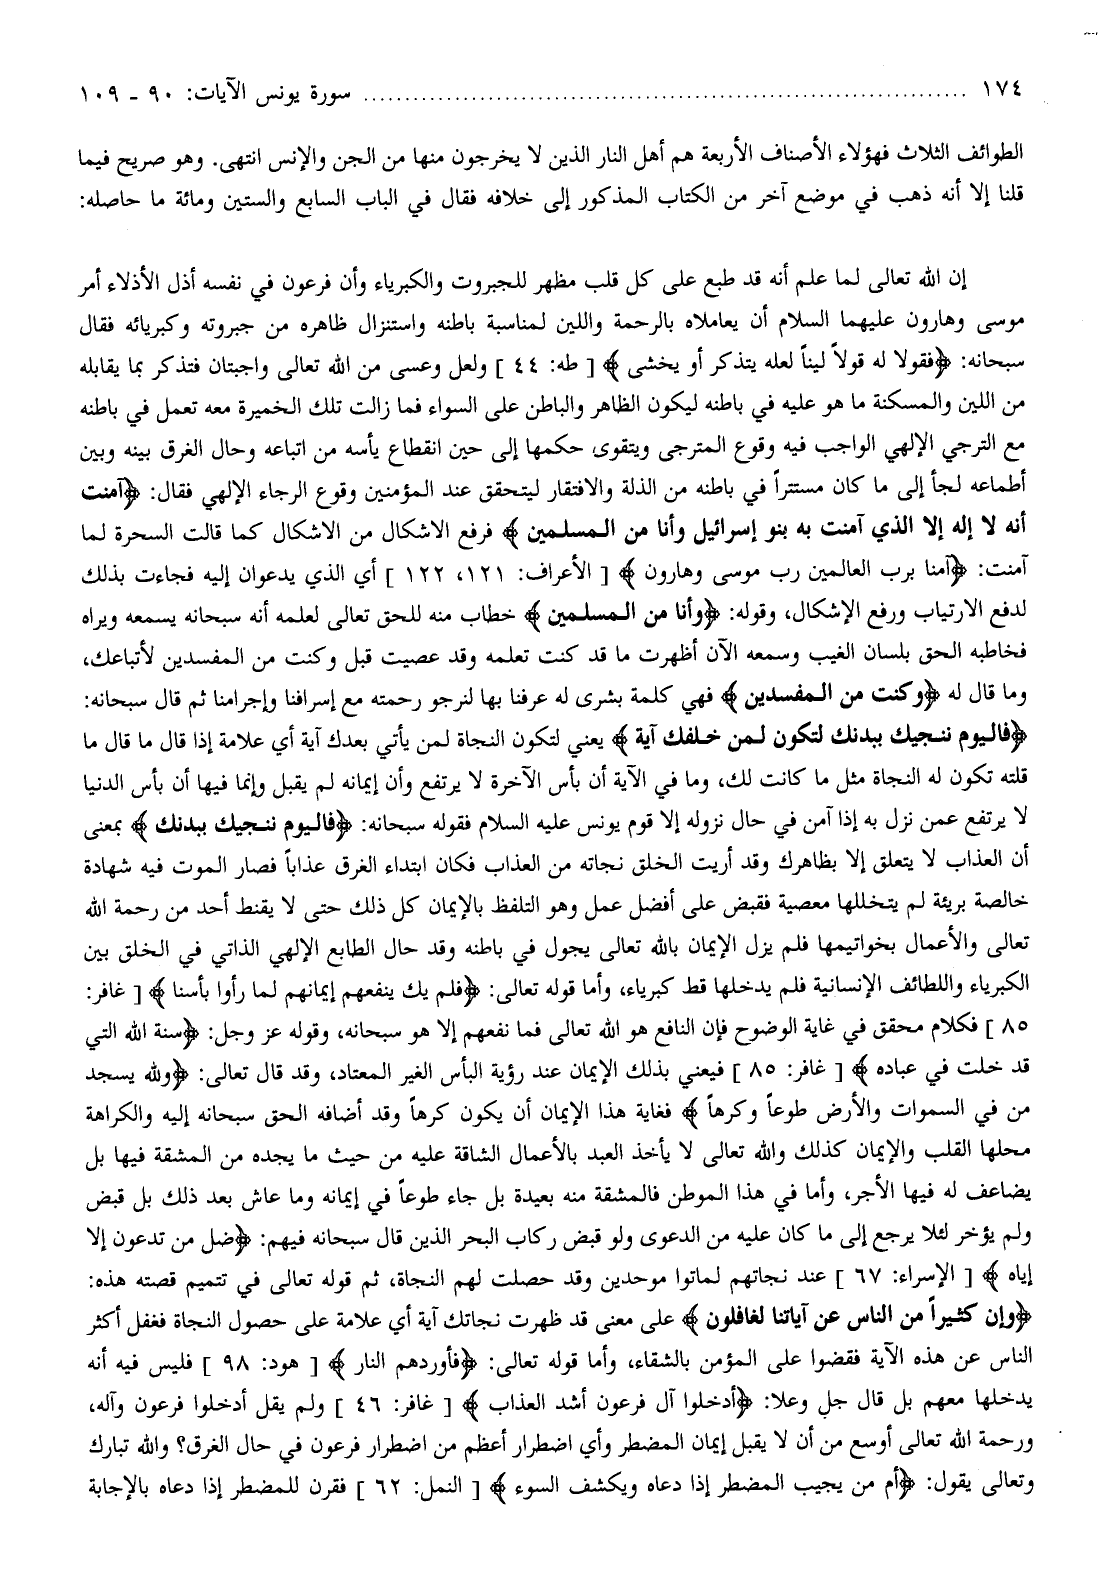 ١٧٤ ........................................................ سورة يونس الآيات: ٩٠ ـ ١٠٩
الطوائف الثلاث فهؤلاء الأصناف الأربعة هم أهل النار الذين لا يخرجون منها من الجن والإنس انتهى. وهو صريح فيما
قلنا إلا أنه ذهب في موضع آخر من الكتاب المذكور إلى خلافه فقال في الباب السابع والستين ومائة ما حاصله:
إن الله تعالى لما علم أنه قد طبع على كل قلب مظهر للجبروت والكبرياء وأن فرعون في نفسه أذل الأذلاء أمر
موسى وهارون عليهما السلام أن يعاملاه بالرحمة واللين لمناسبة باطنه واستنزال ظاهره من جبروته وكبريائه فقال
سبحانه: ﴿فقولا له قولاً ليناً لعله يتذكر أو يخشى﴾ [ طه: ٤٤ ] ولعل وعسى من الله تعالى واجبتان فتذكر بما يقابله
من اللين والمسكنة ما هو عليه في باطنه ليكون الظاهر والباطن على السواء فما زالت تلك الخميرة معه تعمل في باطنه
مع الترجي الإلهي الواجب فيه وقوع المترجى ويتقوى حكمها إلى حين انقطاع يأسه من اتباعه وحال الغرق بينه وبين
أطماعه لجأ إلى ما كان مستتراً في باطنه من الذلة والافتقار ليتحقق عند المؤمنين وقوع الرجاء الإلهي فقال: ﴿آمنت
أنه لا إله إلا الذي آمنت به بنو إسرائيل وأنا من المسلمين﴾ فرفع الاشكال من الاشكال كما قالت السحرة لما
آمنت: ﴿آمنا برب العالمين رب موسى وهارون﴾ [ الأعراف: ١٢١، ١٢٢ ] أي الذي يدعوان إليه فجاءت بذلك
لدفع الارتياب ورفع الإشكال، وقوله: ﴿وأنا من المسلمين﴾ خطاب منه للحق تعالى لعلمه أنه سبحانه يسمعه ويراه
فخاطبه الحق بلسان الغيب وسمعه الآن أظهرت ما قد كنت تعلمه وقد عصيت قبل وكنت من المفسدين لأتباعك،
وما قال له ﴿وكنت من المفسدين﴾ فهي كلمة بشرى له عرفنا بها لنرجو رحمته مع إسرافنا وإجرامنا ثم قال سبحانه:
﴿فاليوم ننجيك ببدنك لتكون لمن خلفك آية﴾ يعني لتكون النجاة لمن يأتي بعدك آية أي علامة إذا قال ما قال ما
قلته تكون له النجاة مثل ما كانت لك، وما في الآية أن بأس الآخرة لا يرتفع وأن إيمانه لم يقبل وإنما فيها أن بأس الدنيا
لا يرتفع عمن نزل به إذا آمن في حال نزوله إلا قوم يونس عليه السلام فقوله سبحانه: ﴿فاليوم ننجيك ببدنك﴾ بمعنى
أن العذاب لا يتعلق إلا بظاهرك وقد أريت الخلق نجاته من العذاب فكان ابتداء الغرق عذاباً فصار الموت فيه شهادة
خالصة بريئة لم يتخللها معصية فقبض على أفضل عمل وهو التلفظ بالإيمان كل ذلك حتى لا يقنط أحد من رحمة الله
تعالى والأعمال بخواتيمها فلم يزل الإيمان بالله تعالى يجول في باطنه وقد حال الطابع الإلهي الذاتي في الخلق بين
الكبرياء واللطائف الإنسانية فلم يدخلها قط كبرياء، وأما قوله تعالى: ﴿فلم يك ينفعهم إيمانهم لما رأوا بأسنا﴾ [ غافر:
٨٥ ] فكلام محقق في غاية الوضوح فإن النافع هو الله تعالى فما نفعهم إلا هو سبحانه، وقوله عز وجل: ﴿سنة الله التي
قد خلت في عباده﴾ [ غافر: ٨٥ ] فيعني بذلك الإيمان عند رؤية البأس الغير المعتاد، وقد قال تعالى: ﴿ولله يسجد
من في السموات والأرض طوعاً وكرهاً﴾ فغاية هذا الإيمان أن يكون كرهاً وقد أضافه الحق سبحانه إليه والكراهة
محلها القلب والإيمان كذلك والله تعالى لا يأخذ العبد بالأعمال الشاقة عليه من حيث ما يجده من المشقة فيها بل
يضاعف له فيها الأجر، وأما في هذا الموطن فالمشقة منه بعيدة بل جاء طوعاً في إيمانه وما عاش بعد ذلك بل قبض
ولم يؤخر لئلا يرجع إلى ما كان عليه من الدعوى ولو قبض ركاب البحر الذين قال سبحانه فيهم: ﴿ضل من تدعون إلا
إياه﴾ [ الإسراء: ٦٧ ] عند نجاتهم لماتوا موحدين وقد حصلت لهم النجاة، ثم قوله تعالى في تتميم قصته هذه:
﴿وإن كثيراً من الناس عن آياتنا لغافلون﴾ على معنى قد ظهرت نجاتك آية أي علامة على حصول النجاة فغفل أكثر
الناس عن هذه الآية فقضوا على المؤمن بالشقاء، وأما قوله تعالى: ﴿فأوردهم النار﴾ [ هود: ٩٨ ] فليس فيه أنه
يدخلها معهم بل قال جل وعلا: ﴿أدخلوا آل فرعون أشد العذاب﴾ [ غافر: ٤٦ ] ولم يقل أدخلوا فرعون وآله،
ورحمة الله تعالى أوسع من أن لا يقبل إيمان المضطر وأي اضطرار أعظم من اضطرار فرعون في حال الغرق؟ والله تبارك
وتعالى يقول: ﴿أم من يجيب المضطر إذا دعاه ويكشف السوء﴾ [ النمل: ٦٢ ] فقرن للمضطر إذا دعاه بالإجابة